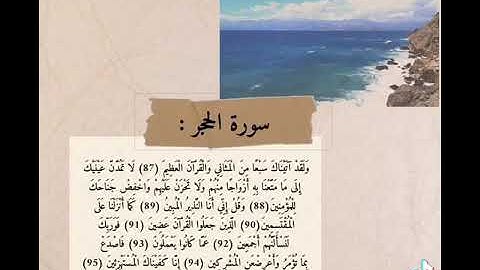 سورة الحجر :
وَلَقَدْ آتَيْنَاكَ سَبْعًا مِنَ الْمَثَانِي وَالْقُرْآنَ الْعَظِيمَ (87) لَا تَمُدَّنَّ عَيْنَيْكَ
إِلَى مَا مَتَّعْنَا بِهِ أَزْوَاجًا مِنْهُمْ وَلَا تَحْزَنْ عَلَيْهِمْ وَاخْفِضْ جَنَاحَكَ
لِلْمُؤْمِنِينَ (88) وَقُلْ إِنِّي أَنَا النَّذِيرُ الْمُبِينُ (89) كَمَا أَنْزَلْنَا عَلَى
الْمُقْتَسِمِينَ (90) الَّذِينَ جَعَلُوا الْقُرْآنَ عِضِينَ (91) فَوَرَبِّكَ
لَنَسْأَلَنَّهُمْ أَجْمَعِينَ (92) عَمَّا كَانُوا يَعْمَلُونَ (93) فَاصْدَعْ
بِمَا تُؤْمَرُ وَأَعْرِضْ عَنِ الْمُشْرِكِينَ (94) إِنَّا كَفَيْنَاكَ الْمُسْتَهْزِئِينَ (95)